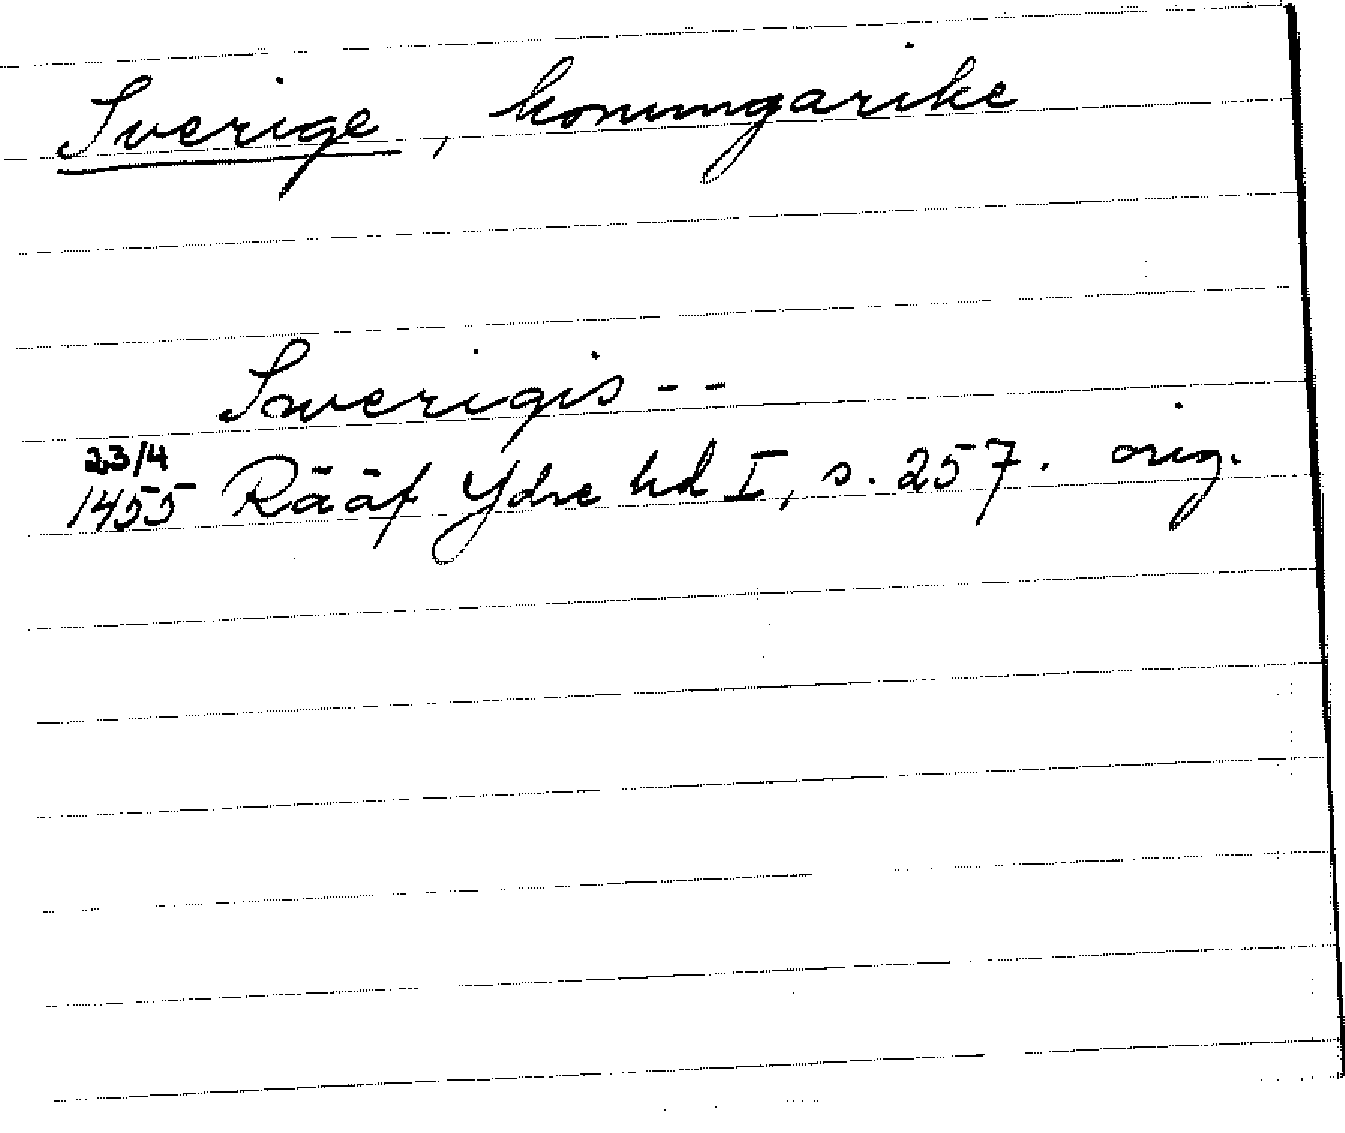 Sverige, konungarike
Swerigis--
23/4
1455 Rääf Ydre hd I, s. 257. orig.